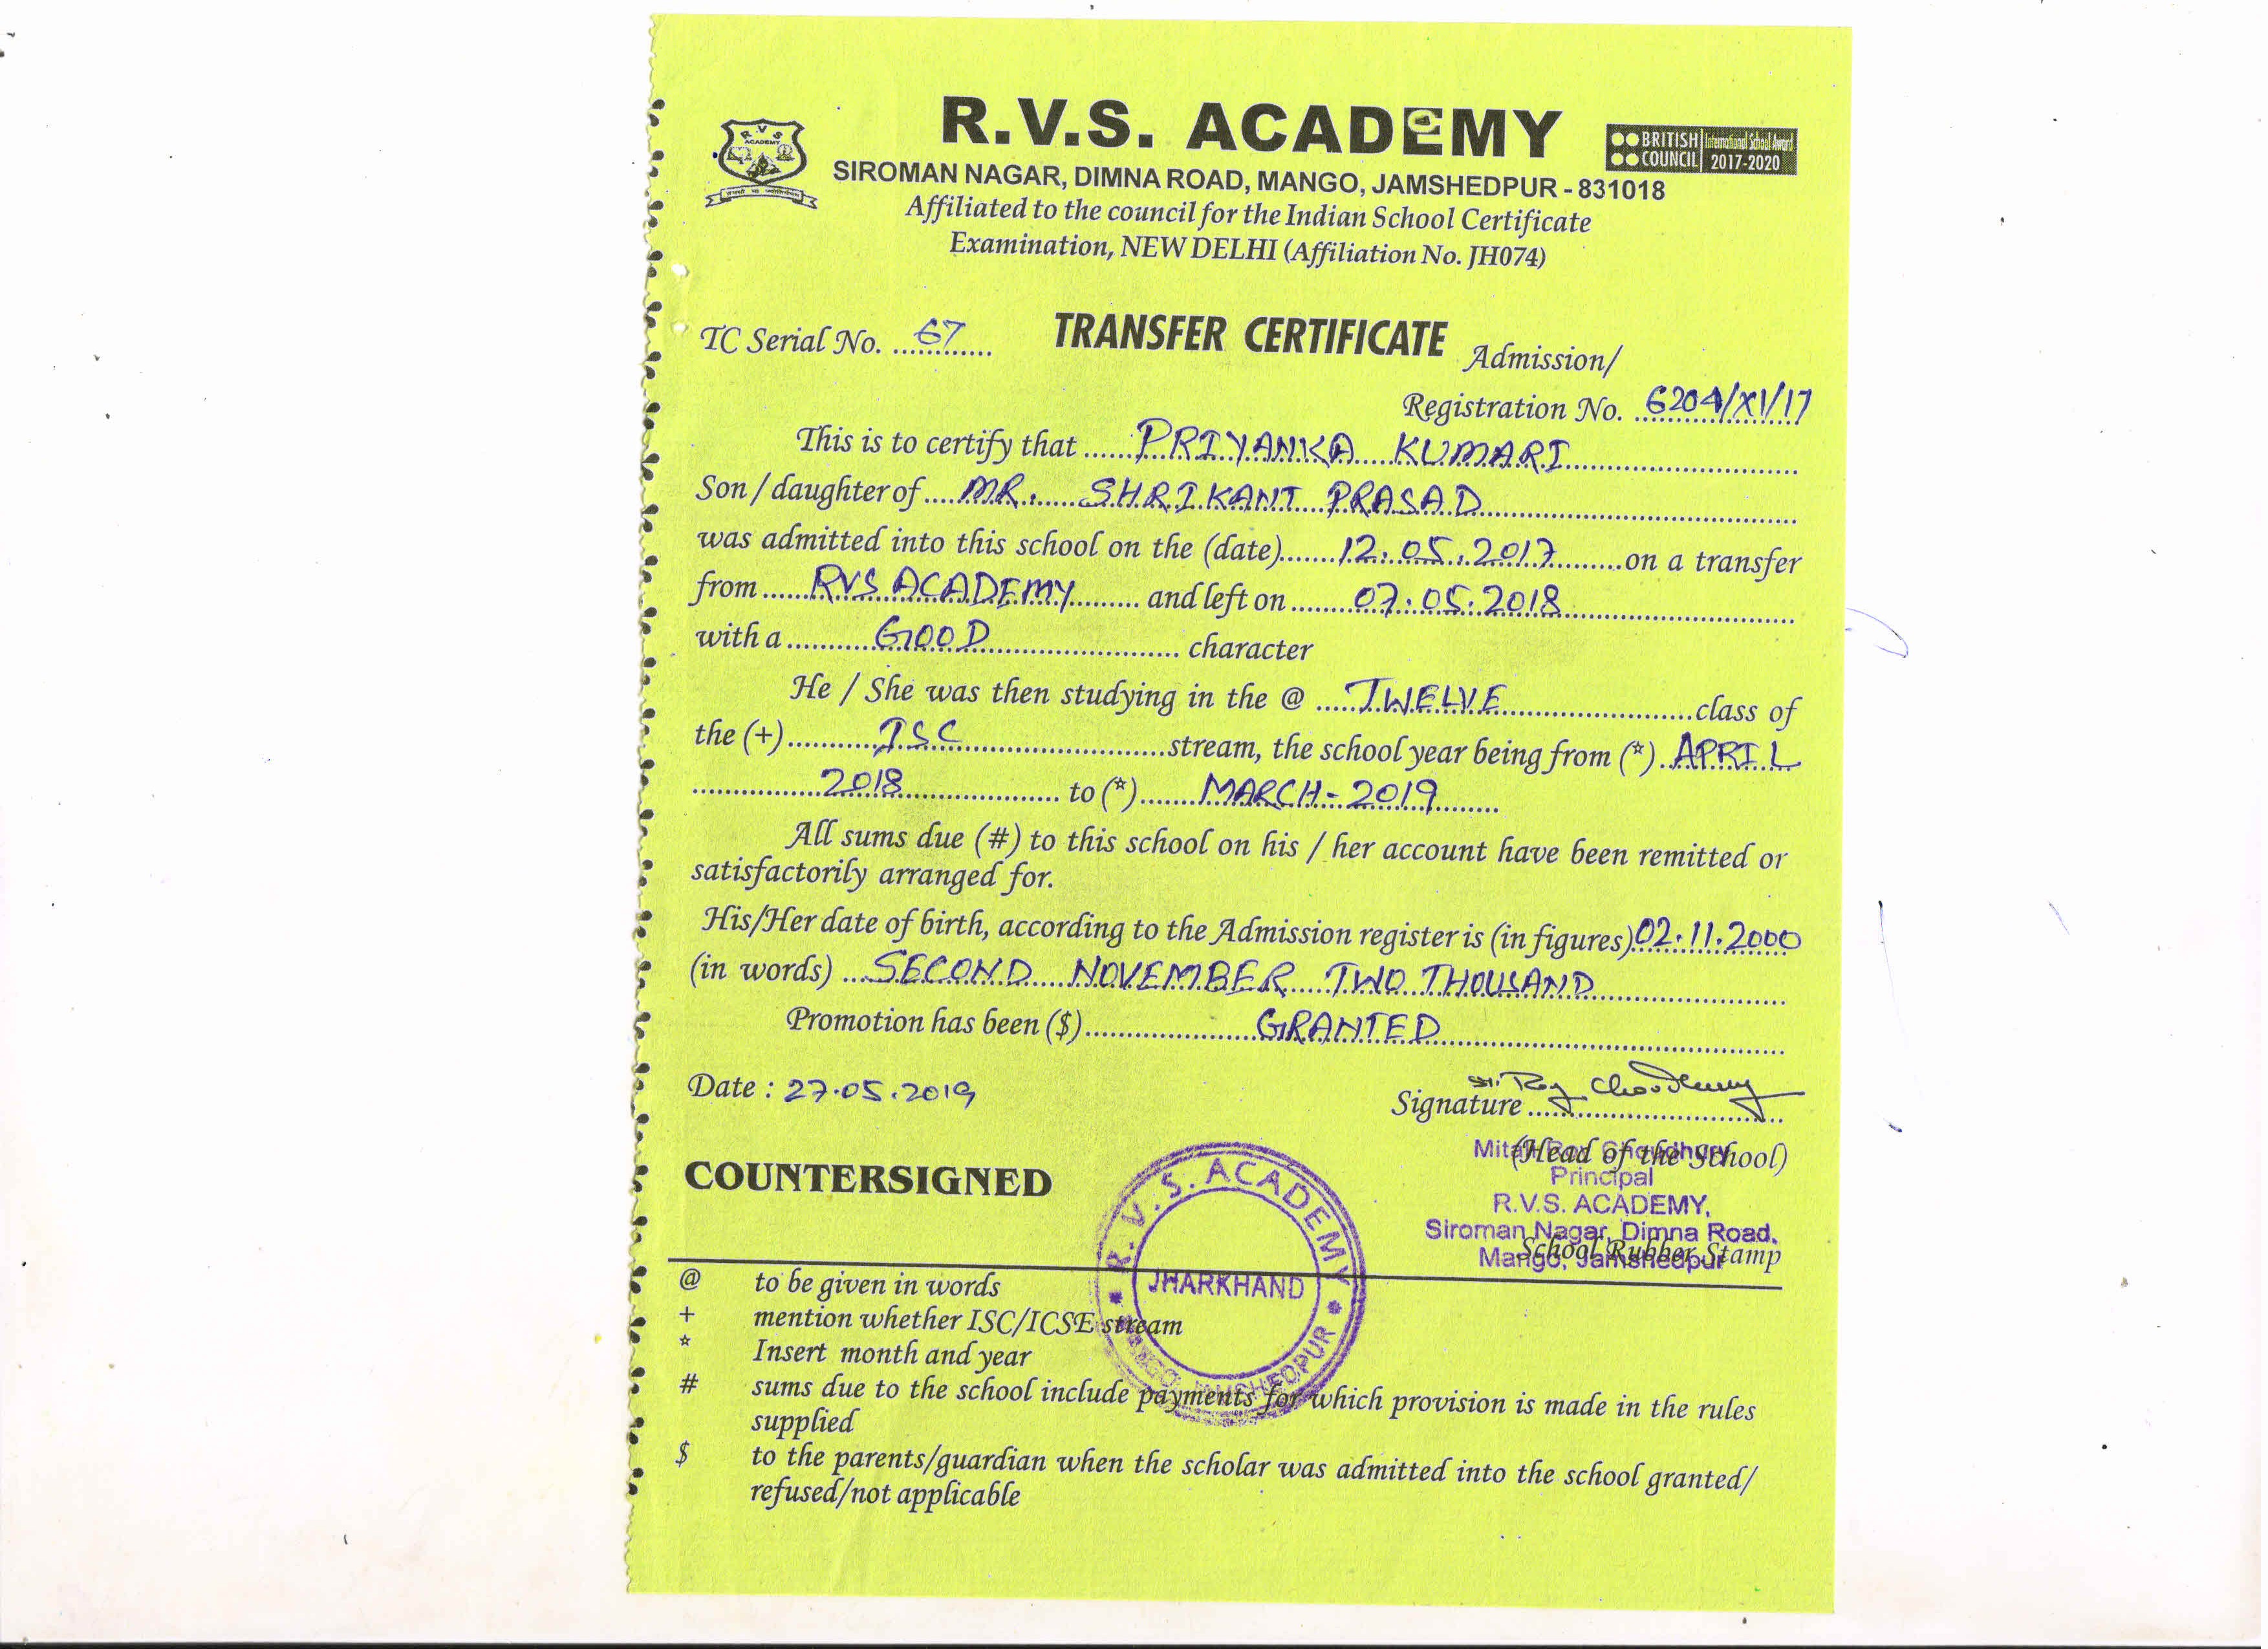 R.V.S. ACADEMY
R V S
ACADEMY
BRITISH COUNCIL International School Award 2017-2020
SIROMAN NAGAR, DIMNA ROAD, MANGO, JAMSHEDPUR - 831018
Affiliated to the council for the Indian School Certificate
Examination, NEW DELHI (Affiliation No. JH074)
TC Serial No. 67 TRANSFER CERTIFICATE Admission/
Registration No. 6204/XI/17
This is to certify that PRIYANKA KUMARI
Son / daughter of MR. SHRIKANT PRASAD
was admitted into this school on the (date) 12.05.2017 on a transfer
from RVS ACADEMY and left on 07.05.2018
with a GOOD character
He / She was then studying in the @ TWELVE class of
the (+) ISC stream, the school year being from (*) APRIL
2018 to (*) MARCH-2019
All sums due (#) to this school on his / her account have been remitted or
satisfactorily arranged for.
His/Her date of birth, according to the Admission register is (in figures) 02.11.2000
(in words) SECOND NOVEMBER TWO THOUSAND
Promotion has been ($) GRANTED
Date : 27.05.2019
Signature Roy Choudhury
(Head of the School)
Principal
R.V.S. ACADEMY,
Siroman Nagar, Dimna Road,
Mango, Jamshedpur
School Rubber Stamp
COUNTERSIGNED
R.V.S. ACADEMY
JHARKHAND
MANGO, JAMSHEDPUR
@ to be given in words
+ mention whether ISC/ICSE stream
* Insert month and year
# sums due to the school include payments for which provision is made in the rules
supplied
$ to the parents/guardian when the scholar was admitted into the school granted/
refused/not applicable